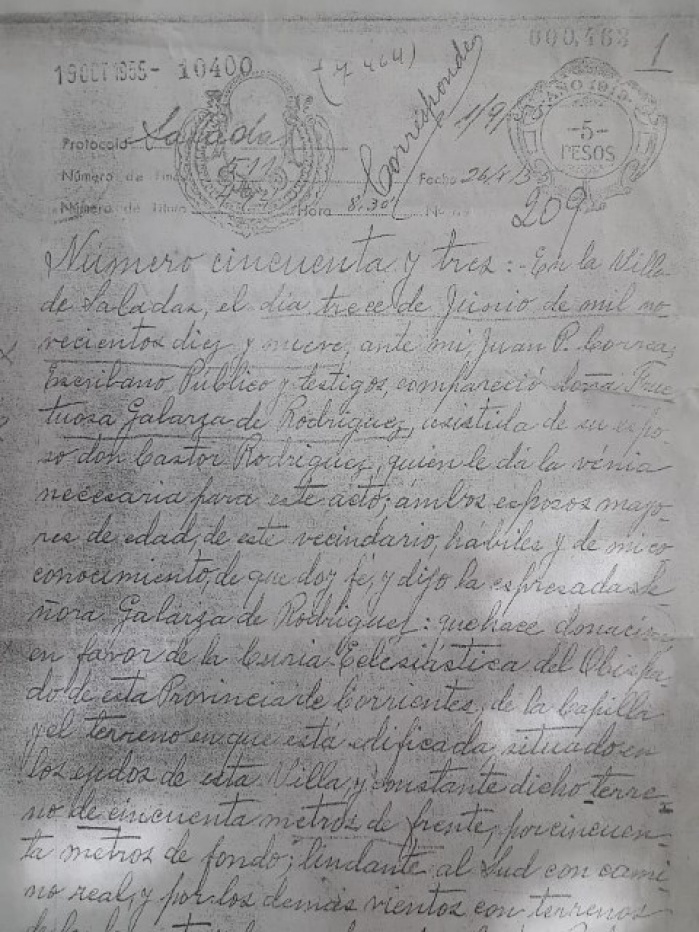 000,463
1
19 OCT 1955 - 10400
(7464)
Corresponde
AÑO 1919
-5-
PESOS
Protocolo Saladas
Número de 511
Fecha 26/8/3
Número de Título Hora 8.30
209
Número cincuenta y tres: - En la Villa
de Saladas, el día trece de Junio de mil no-
vecientos diez y nueve, ante mi, Juan P. Correa,
Escribano Público y testigos, compareció doña Fruc-
tuosa Galarza de Rodriguez, asistida de su espo-
so don Castor Rodriguez, quien le dá la vénia
necesaria para este acto; ámbos esposos mayo-
res de edad, de este vecindario, hábiles y de mi co-
conocimiento, de que doy fé, y dijo la espresada se-
ñora Galarza de Rodriguez: que hace donación
en favor de la Curia Eclesiástica del Obispa-
do de esta Provincia de Corrientes, de la Capilla
y el terreno en que está edificada, situado en
los ejidos de esta Villa y constante dicho terre-
no de cincuenta metros de frente, por cincuen-
ta metros de fondo; lindante al Sud con cami-
no real, y por los demás vientos con terrenos